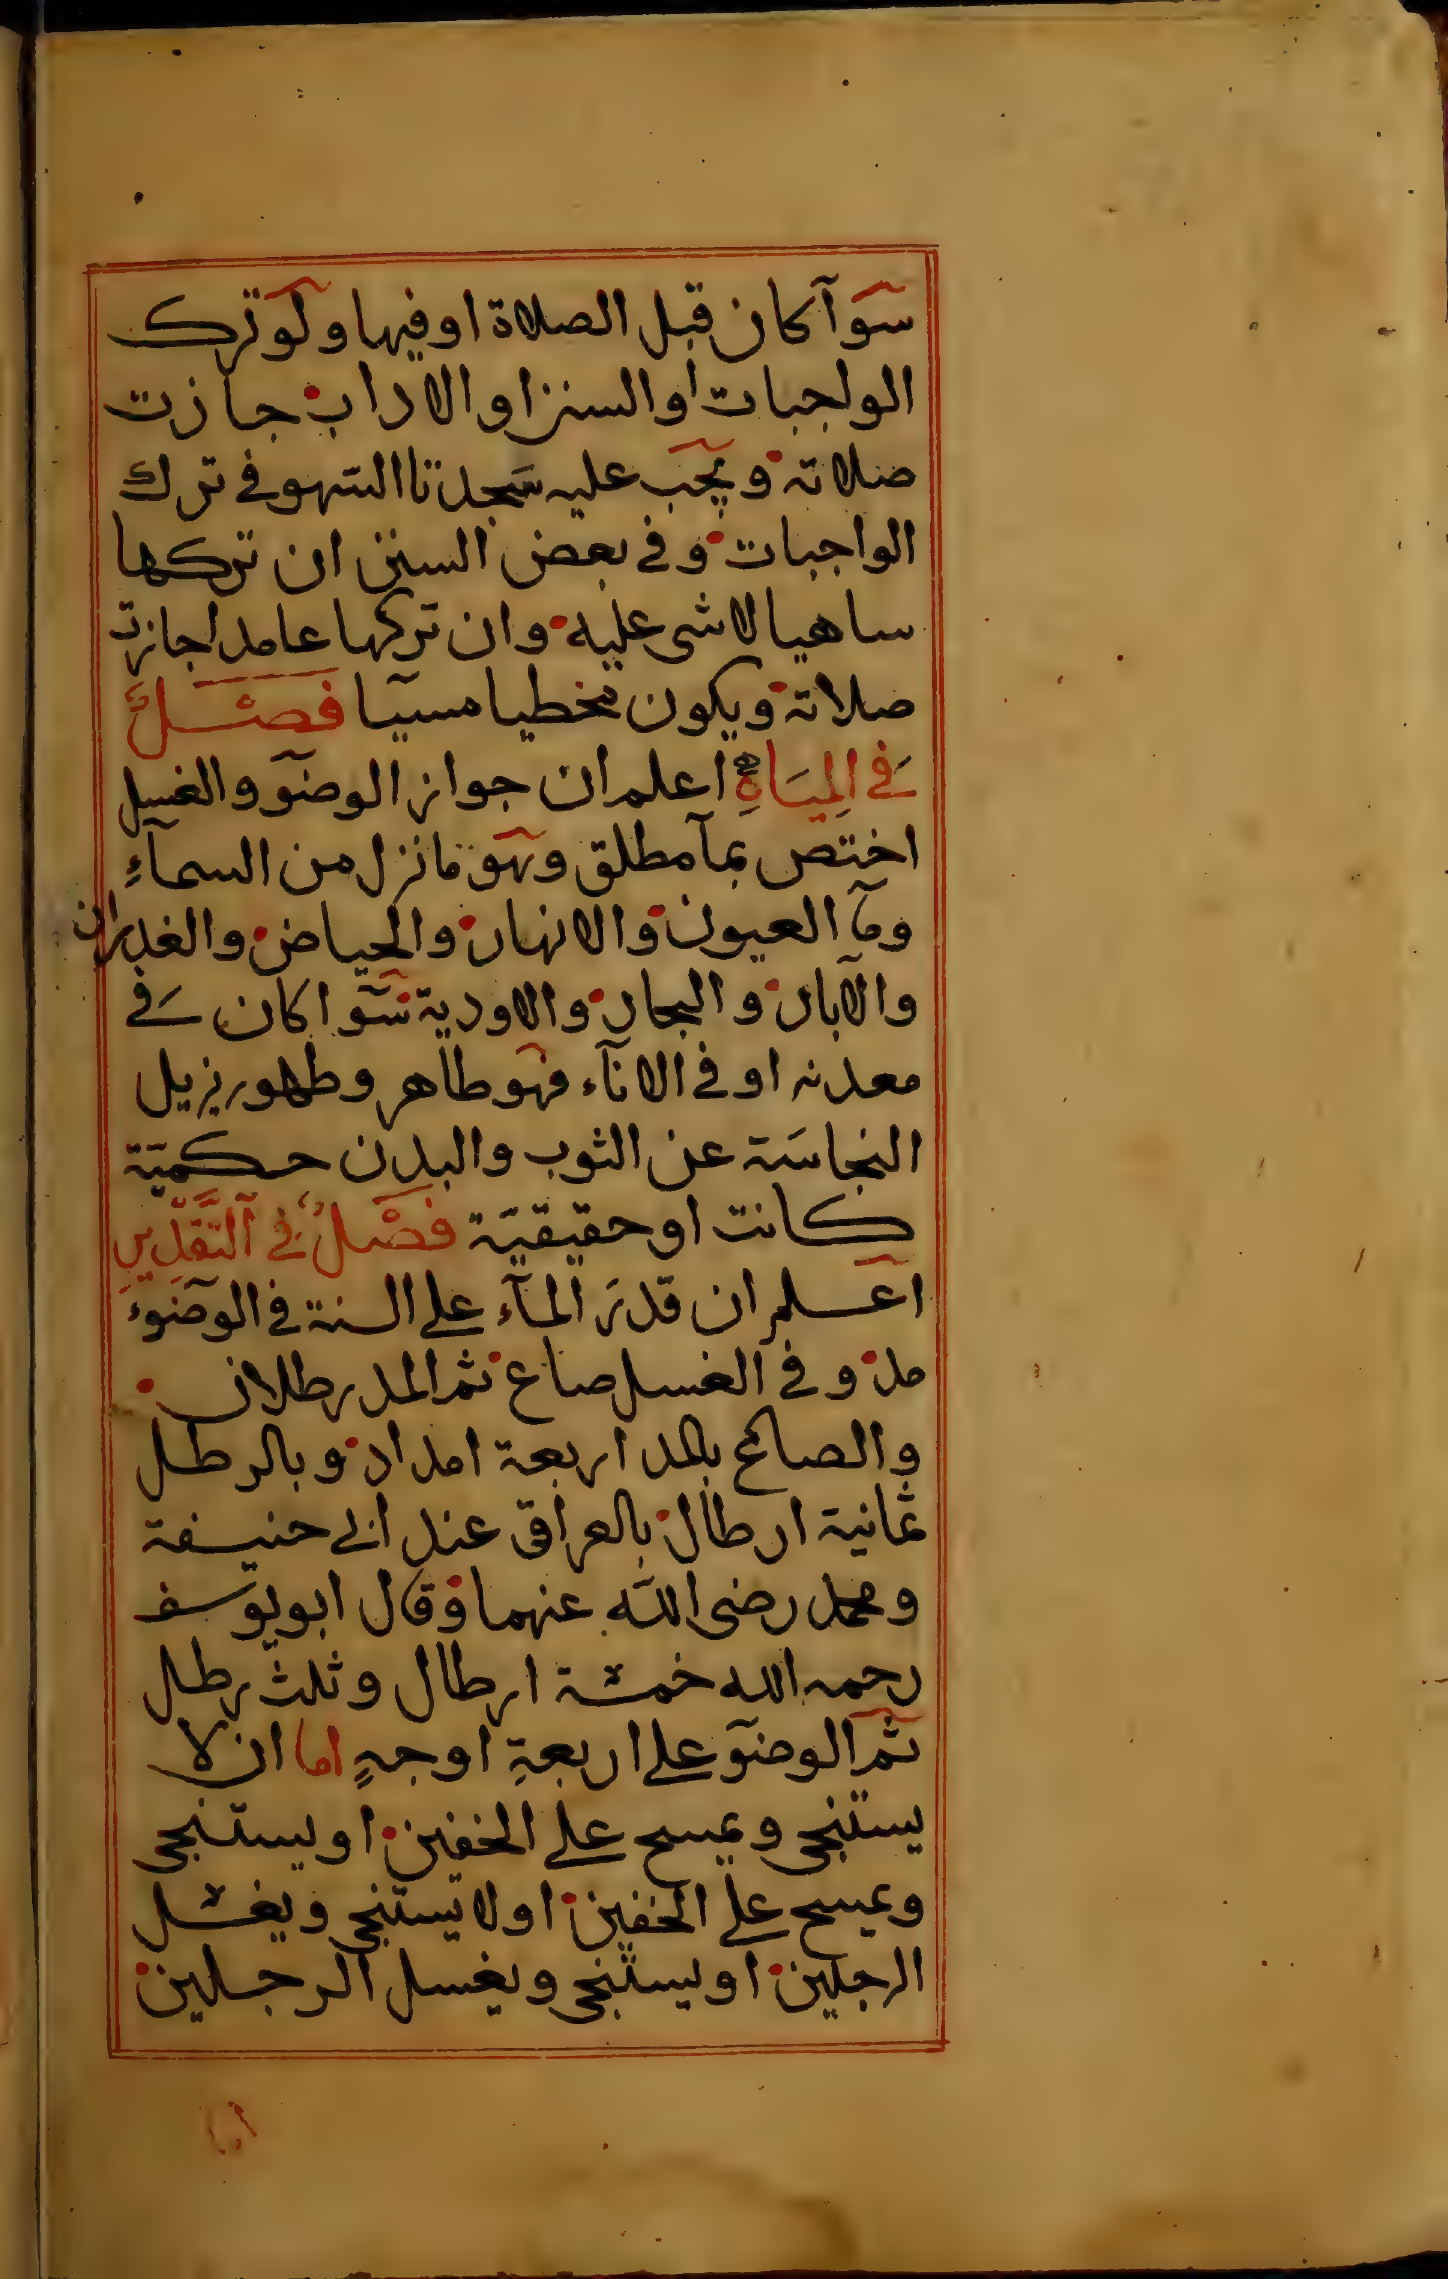 سوآ كان قبل الصلاة او فيها ولو ترك
الواجبات او السنن او الاداب جازت
صلاته ويجب عليه سجدتا السهو في ترك
الواجبات وفي بعض السنن ان تركها
ساهيا لا شى عليه وان تركها عامدا جازت
صلاته ويكون مخطيا مسيآ فصل
في المياه اعلم ان جواز الوضوٓ والغسل
اختص بمآ مطلق وهو ما نزل من السمآء
ومآ العيون والانهار والحياض والغدران
والآبار والبحار والاودية سوآ كان في
معدنه او في الانآء فهو طاهر وطهور يزيل
النجاسة عن الثوب والبدن حكمية
كانت او حقيقية فصل في التقدير
اعلم ان قدر المآء على السنة في الوضوء
مد وفي الغسل صاع ثم المد رطلان
والصاع بالمد اربعة امداد وبالرطل
ثمانية ارطال بالعراقى عند ابي حنيفة
ومحمد رضى الله عنهما وقال ابو يوسف
رحمه الله خمسة ارطال وثلث رطل
ثم الوضوٓ على اربعةِ اوجهٍ اما ان لا
يستنجى ويمسح على الخفين او يستنجى
ويمسح على الخفين او لا يستنجى ويغسل
الرجلين او يستنجى ويغسل الرجلين